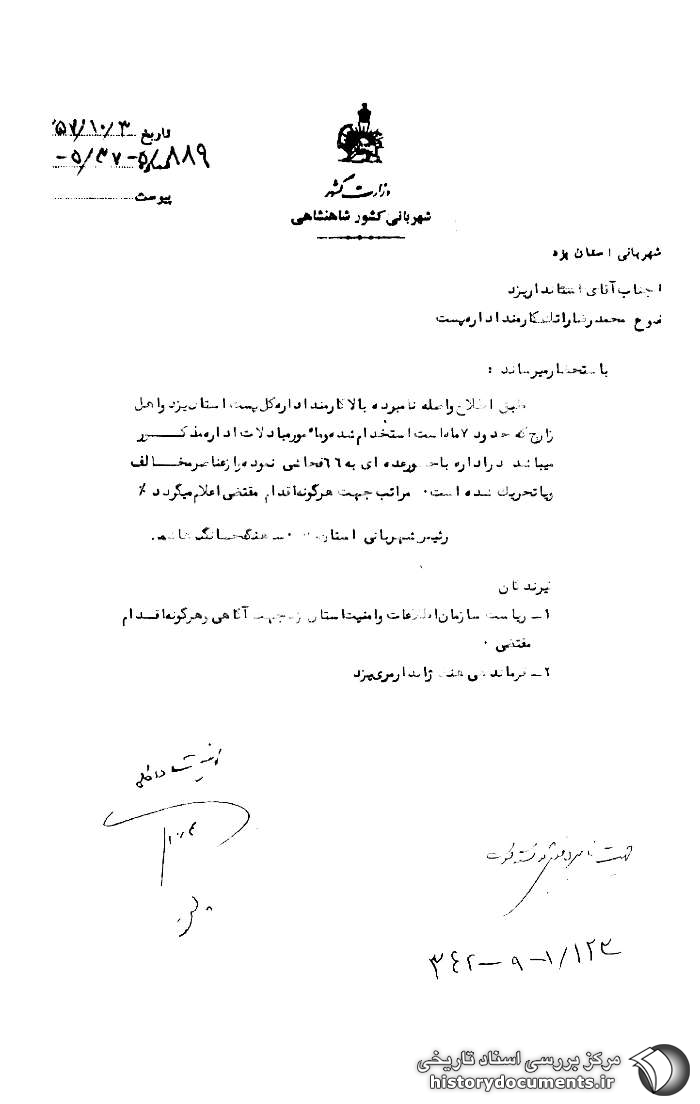 تاریخ ۵۷/۱۰/۳
شماره ۵/۳۷-۵/۸۸۹-
پیوست
وزارت کشور
شهربانی کشور شاهنشاهی
شهربانی استان یزد
جناب آقای استاندار یزد
محمدرضا کارمند اداره پست
باستحضار میرساند :
طبق اطلاع واصله نامبرده بالا کارمند اداره کل پست استان یزد و اهل
زارچ که حدود ۷ ماه است استخدام شده و مامور مبادلات اداره مذکور
میباشد در اداره با حضور عده ای به ۶۶ فحاشی نموده و از عناصر مخالف
و یا تحریک شده است ۰ مراتب جهت هرگونه اقدام مقتضی اعلام میگردد ٪
رئیس شهربانی استان
گیرندگان
۱ــ ریاست سازمان اطلاعات و امنیت استان یزد جهت آگاهی و هرگونه اقدام
مقتضی ۰
۲ــ فرماندهی ژاندارمری یزد
امنیت داخلی
۱۰/۴
۳۴۲-۹-۱/۱۲۳
مرکز بررسی اسناد تاریخی
historydocuments.ir